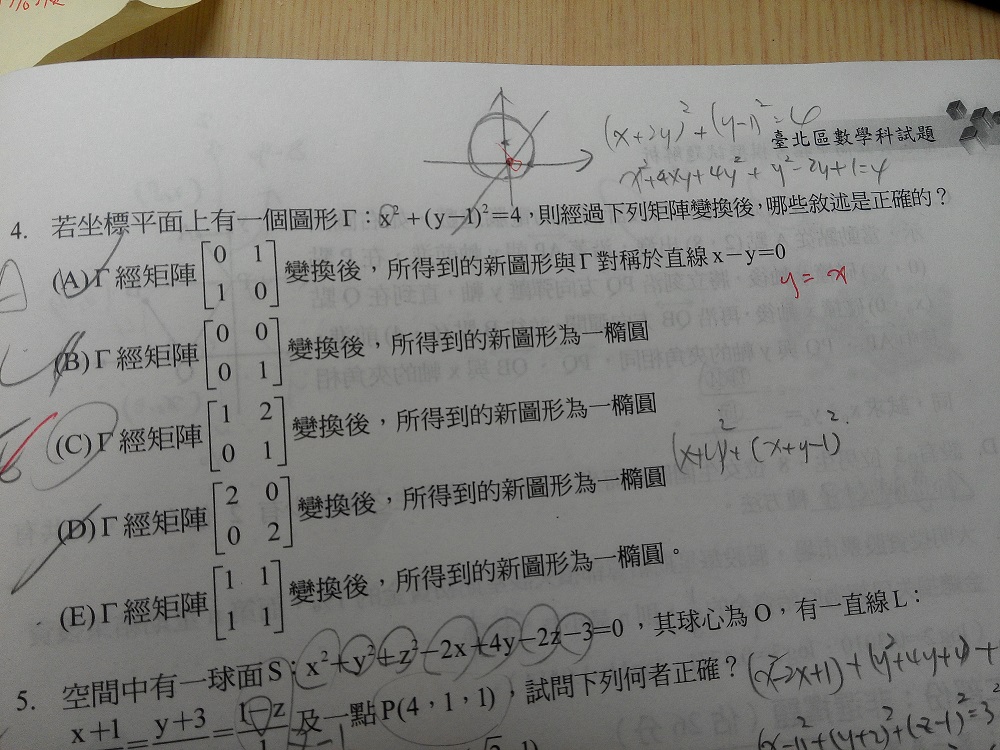 (x+2y)²+(y-1)²=4
臺北區數學科試題
x²+4xy+4y²+y²-2y+1=4
4. 若坐標平面上有一個圖形Γ：x²+(y-1)²=4，則經過下列矩陣變換後，哪些敘述是正確的？
(A)Γ經矩陣[0 1; 1 0]變換後，所得到的新圖形與Γ對稱於直線x-y=0
y=x
(B)Γ經矩陣[0 0; 0 1]變換後，所得到的新圖形為一橢圓
(C)Γ經矩陣[1 2; 0 1]變換後，所得到的新圖形為一橢圓
(x+y)²+(x+y-1)²
(D)Γ經矩陣[2 0; 0 2]變換後，所得到的新圖形為一橢圓
(E)Γ經矩陣[1 1; 1 1]變換後，所得到的新圖形為一橢圓。
5. 空間中有一球面S：x²+y²+z²-2x+4y-2z-3=0，其球心為O，有一直線L：
x+1 = y+3 = 1-z 及一點P(4，1，1)，試問下列何者正確？
(x²-2x+1)+(y²+4y+4)+
(x-1)²+(y+2)²+(z-1)²=3²